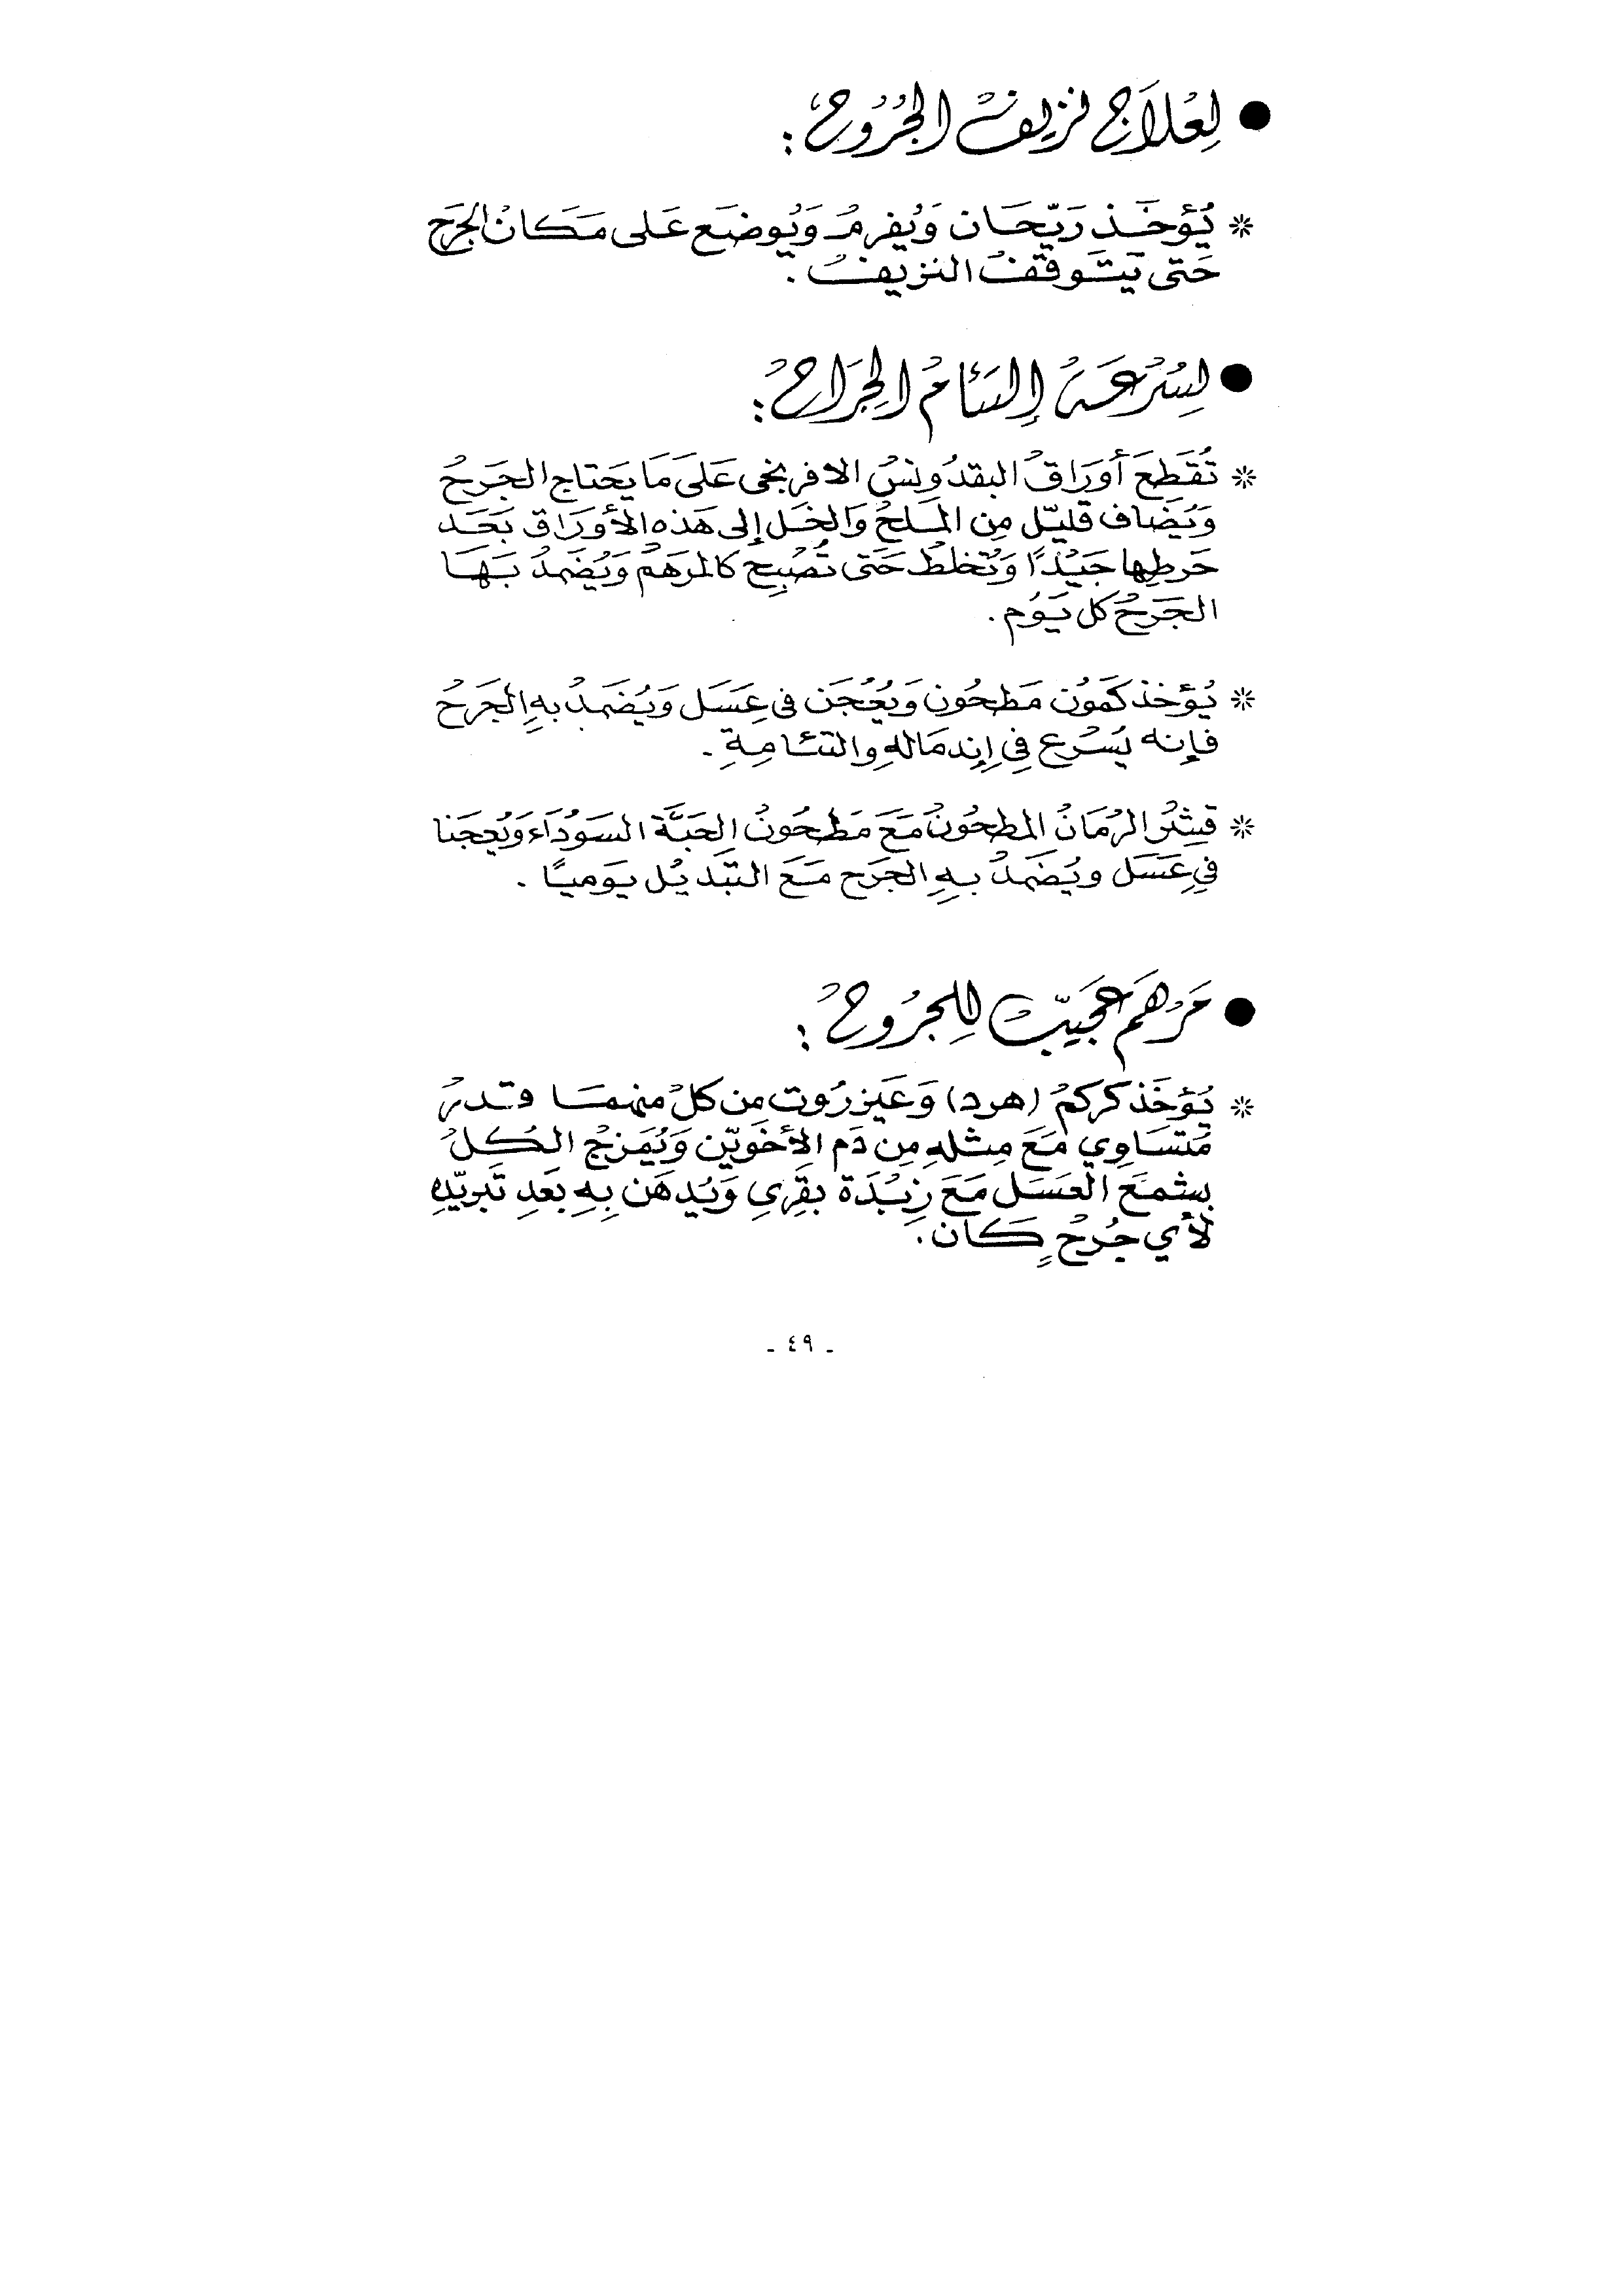 ● لِعُلاَجِ نزيفُ الجُرُوحُ :
* يُؤخَذ رَيّحَان وَيُفرمُ وَيُوضَع عَلى مَكانُ الجَرح
حَتى يَتَوقفُ النزيفُ .
● لِسُرْعَةُ إلتئامُ الجِرَاحُ :
* تُقَطِعَ أورَاقُ البقدُونسُ الافرنجى عَلَى مَا يَحَتاج الجَرحُ
وَيُضَاف قليّل مِن المَلحُ وَالخَل إلى هَذه الأورَاق بَعَد
خَرطِها جَيُدًا وَتُخلطُ حَتى تُصُبِح كالمرَهَمُ وَيُضَمدُ بَهَا
الجَرحُ كل يَوُم .
* يُؤخذ كَمَوُن مَطحُون وَيُعُجَن فى عِسَل وَيُضَمدُ بهِ الجَرحُ
فإنه يُسُرع فِي إندمَالهِ والتئامِةِ .
* قِشرُ الرُمَانُ المطحُونُ مَعَ مَطحُونُ الحَبَّة السَوُدَاء وَيُعجَنا
فِي عِسَل ويُضَمدُ بهِ الجَرح مَعَ التبَديُل يَوميًا .
● مَرُهَم عَجَيبُ لِلجرُوحُ :
* يُؤخَذ كركمُ (هرد) وَعَنزرُوت مِن كلُ منهمَا قدرُ
مُتسَاوِي مَعَ مِثلهِ مِن دَم الأخوَيّن وَيُمَزجُ الكُلُ
بشمَعَ العَسَل مَعَ زِبُدَة بقِري وَيُدهَن بِهِ بَعَدِ تَبريّدهِ
لأي جُرحُ كَان .
- ٤٩ -